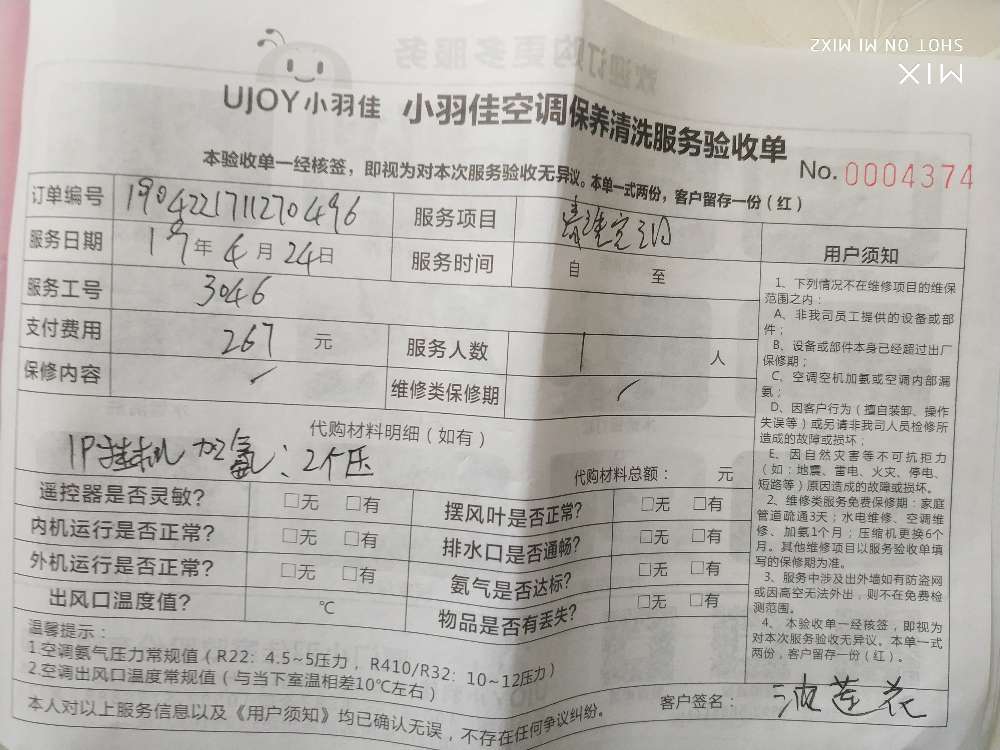 SHOT ON MI MIX2
MIX
欢迎订购更多服务
UJOY小羽佳 小羽佳空调保养清洗服务验收单
本验收单一经核签，即视为对本次服务验收无异议。本单一式两份，客户留存一份（红）
No. 0004374
订单编号 1904221711270496 服务项目
服务日期 19年4月24日 服务时间 自 至
服务工号 3046
支付费用 267 元 服务人数 1 人
保修内容 ✓ 维修类保修期 ✓
代购材料明细（如有）
1P挂机加氨：2个压
代购材料总额： 元
遥控器是否灵敏？ □无 □有 摆风叶是否正常？ □无 □有
内机运行是否正常？ □无 □有 排水口是否通畅？ □无 □有
外机运行是否正常？ □无 □有 氨气是否达标？ □无 □有
出风口温度值？ ℃ 物品是否有丢失？ □无 □有
温馨提示：
1.空调氨气压力常规值（R22：4.5~5压力，R410/R32：10~12压力）
2.空调出风口温度常规值（与当下室温相差10℃左右）
本人对以上服务信息以及《用户须知》均已确认无误，不存在任何争议纠纷。
客户签名： 莲花
用户须知
1、下列情况不在维修项目的维保
范围之内：
A、非我司员工提供的设备或部
件；
B、设备或部件本身已经超过出厂
保修期；
C、空调空机加氨或空调内部漏
氨；
D、因客户行为（擅自装卸、操作
失误等）或另请非我司人员检修所
造成的故障或损坏；
E、因自然灾害等不可抗拒力
（如：地震、雷电、火灾、停电、
短路等）原因造成的故障或损坏。
2、维修类服务免费保修期：家庭
管道疏通3天；水电维修、空调维
修、加氨1个月；压缩机更换6个
月。其他维修项目以服务验收单填
写的保修期为准。
3、服务中涉及出外墙如有防盗网
或因高空无法外出，则不在免费检
测范围。
4、本验收单一经核签，即视为
对本次服务验收无异议。本单一式
两份，客户留存一份（红）。